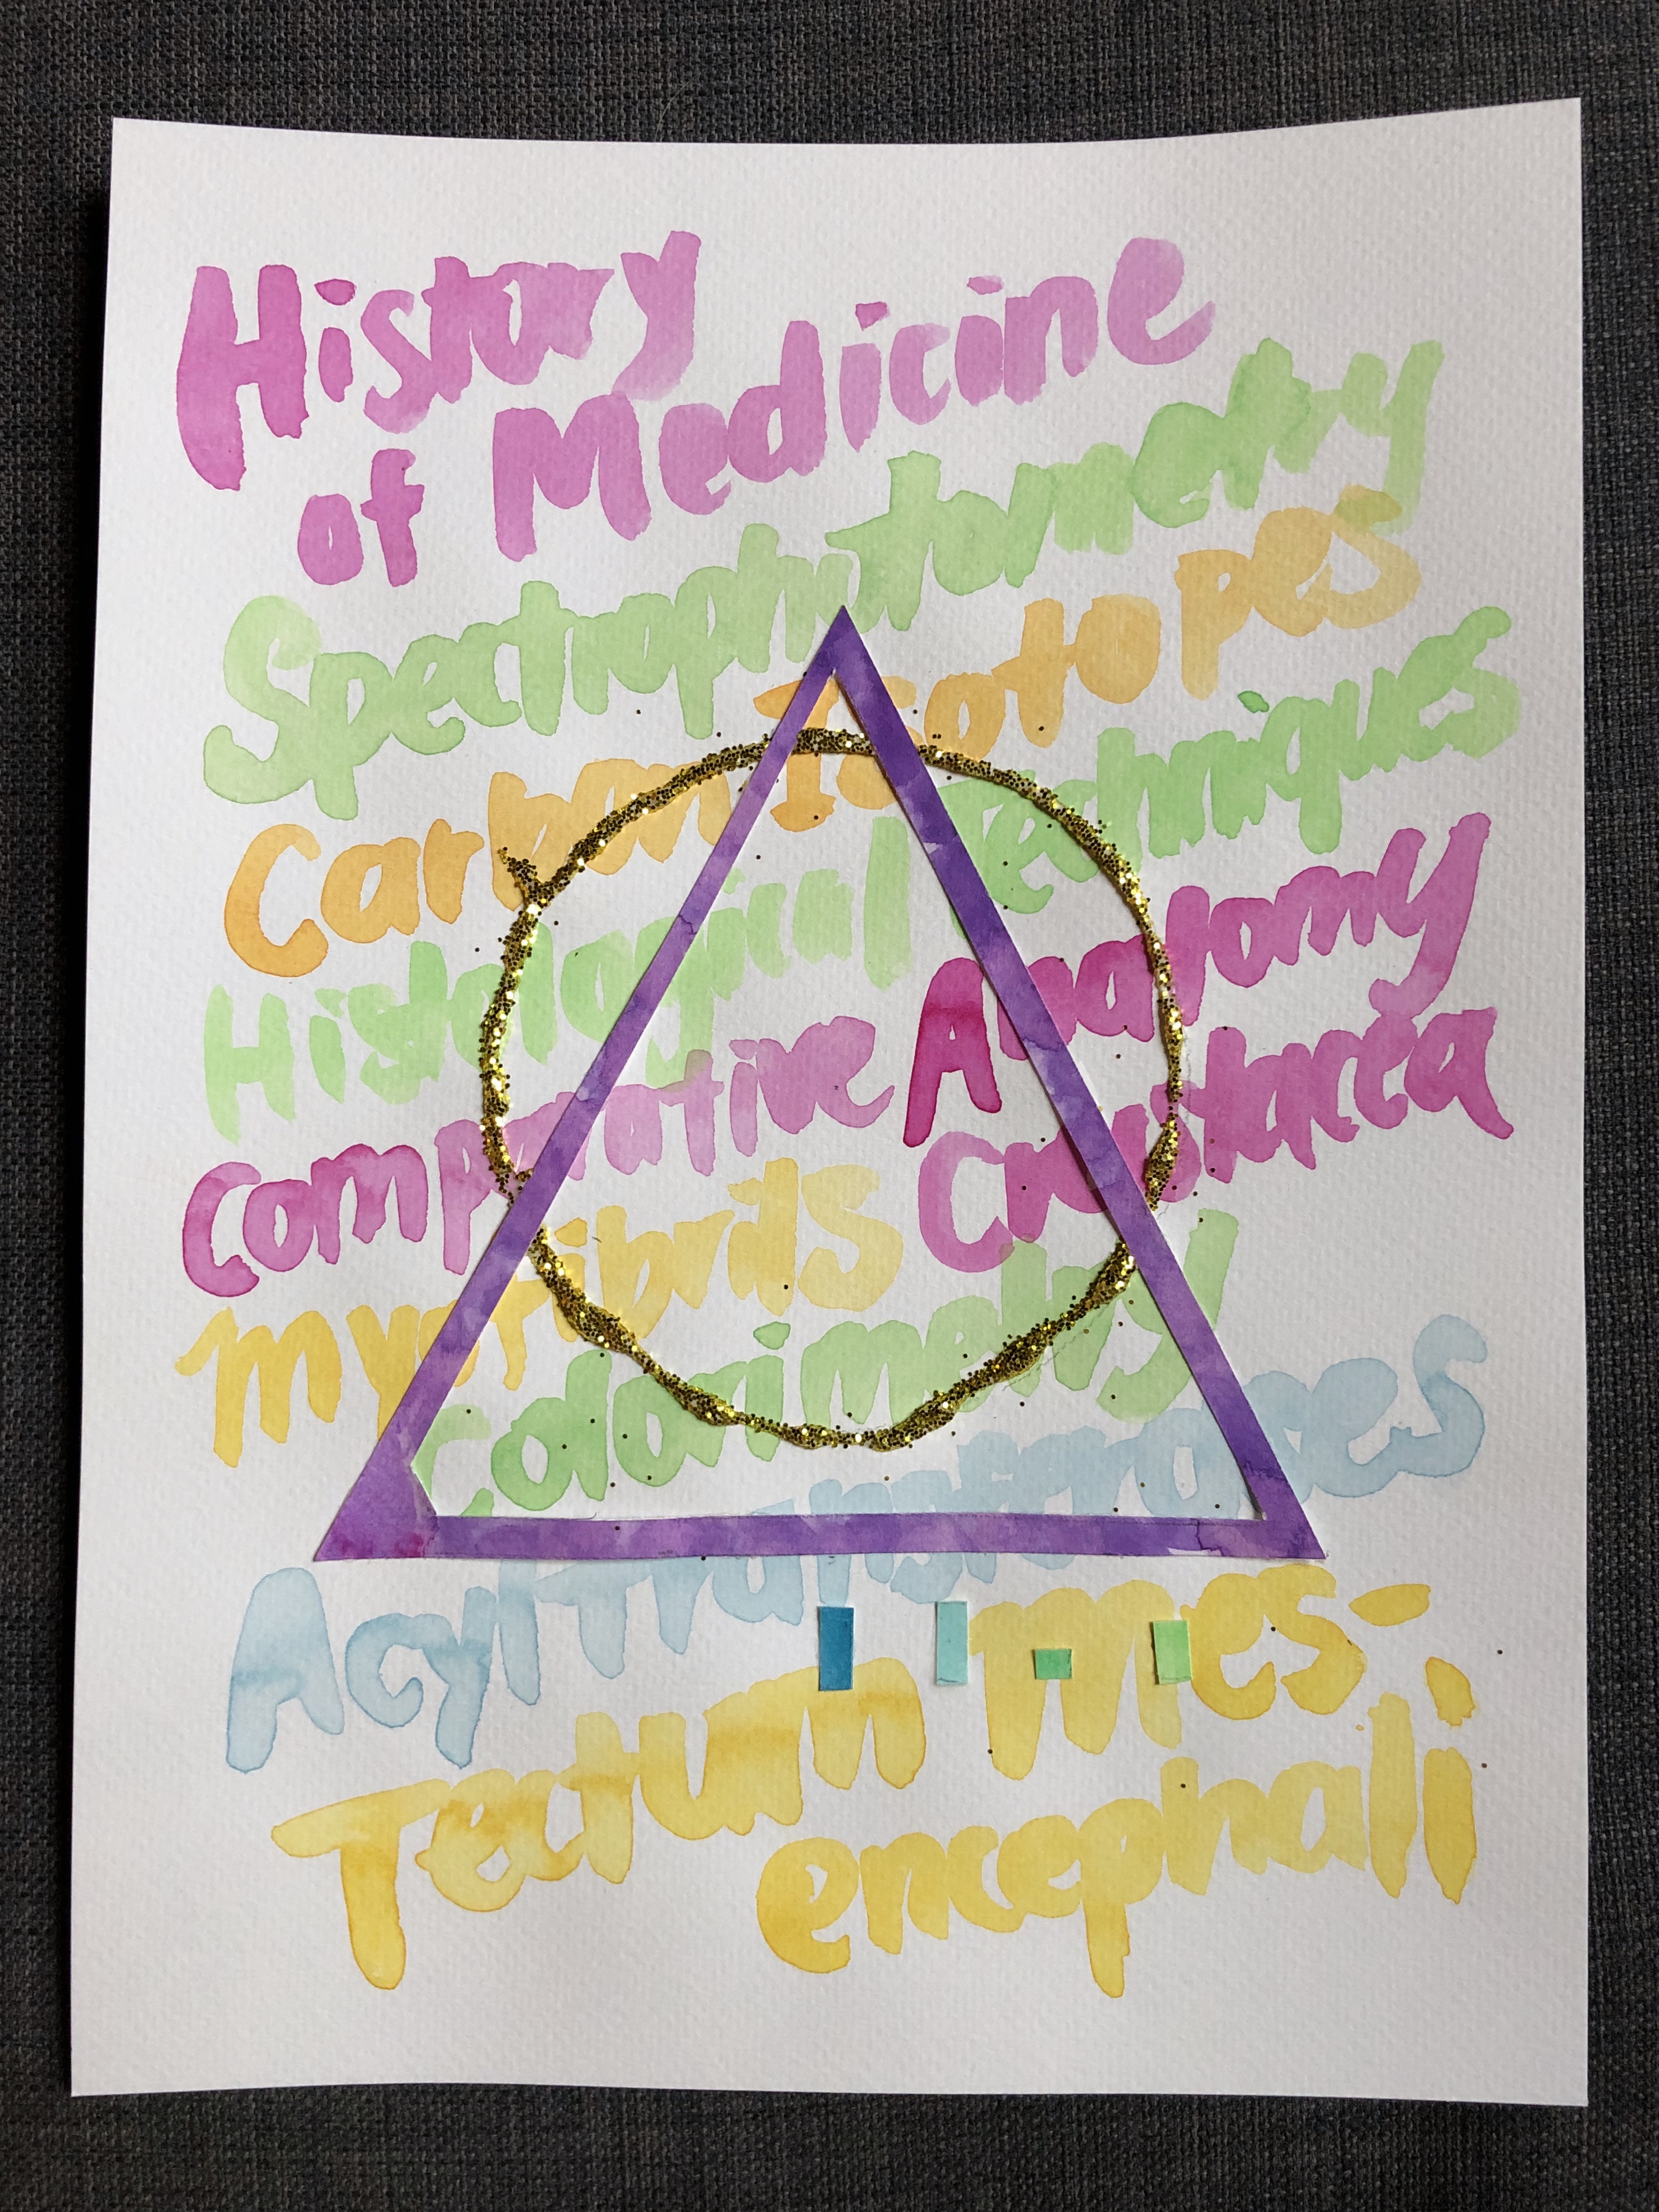 History
of Medicine
Spectrophotometry
Carbon Isotopes
Histological Techniques
Comparative Anatomy
Crustacea
myofibrils
Colorimetry
Acyltransferases
Tectum mes-
encephali